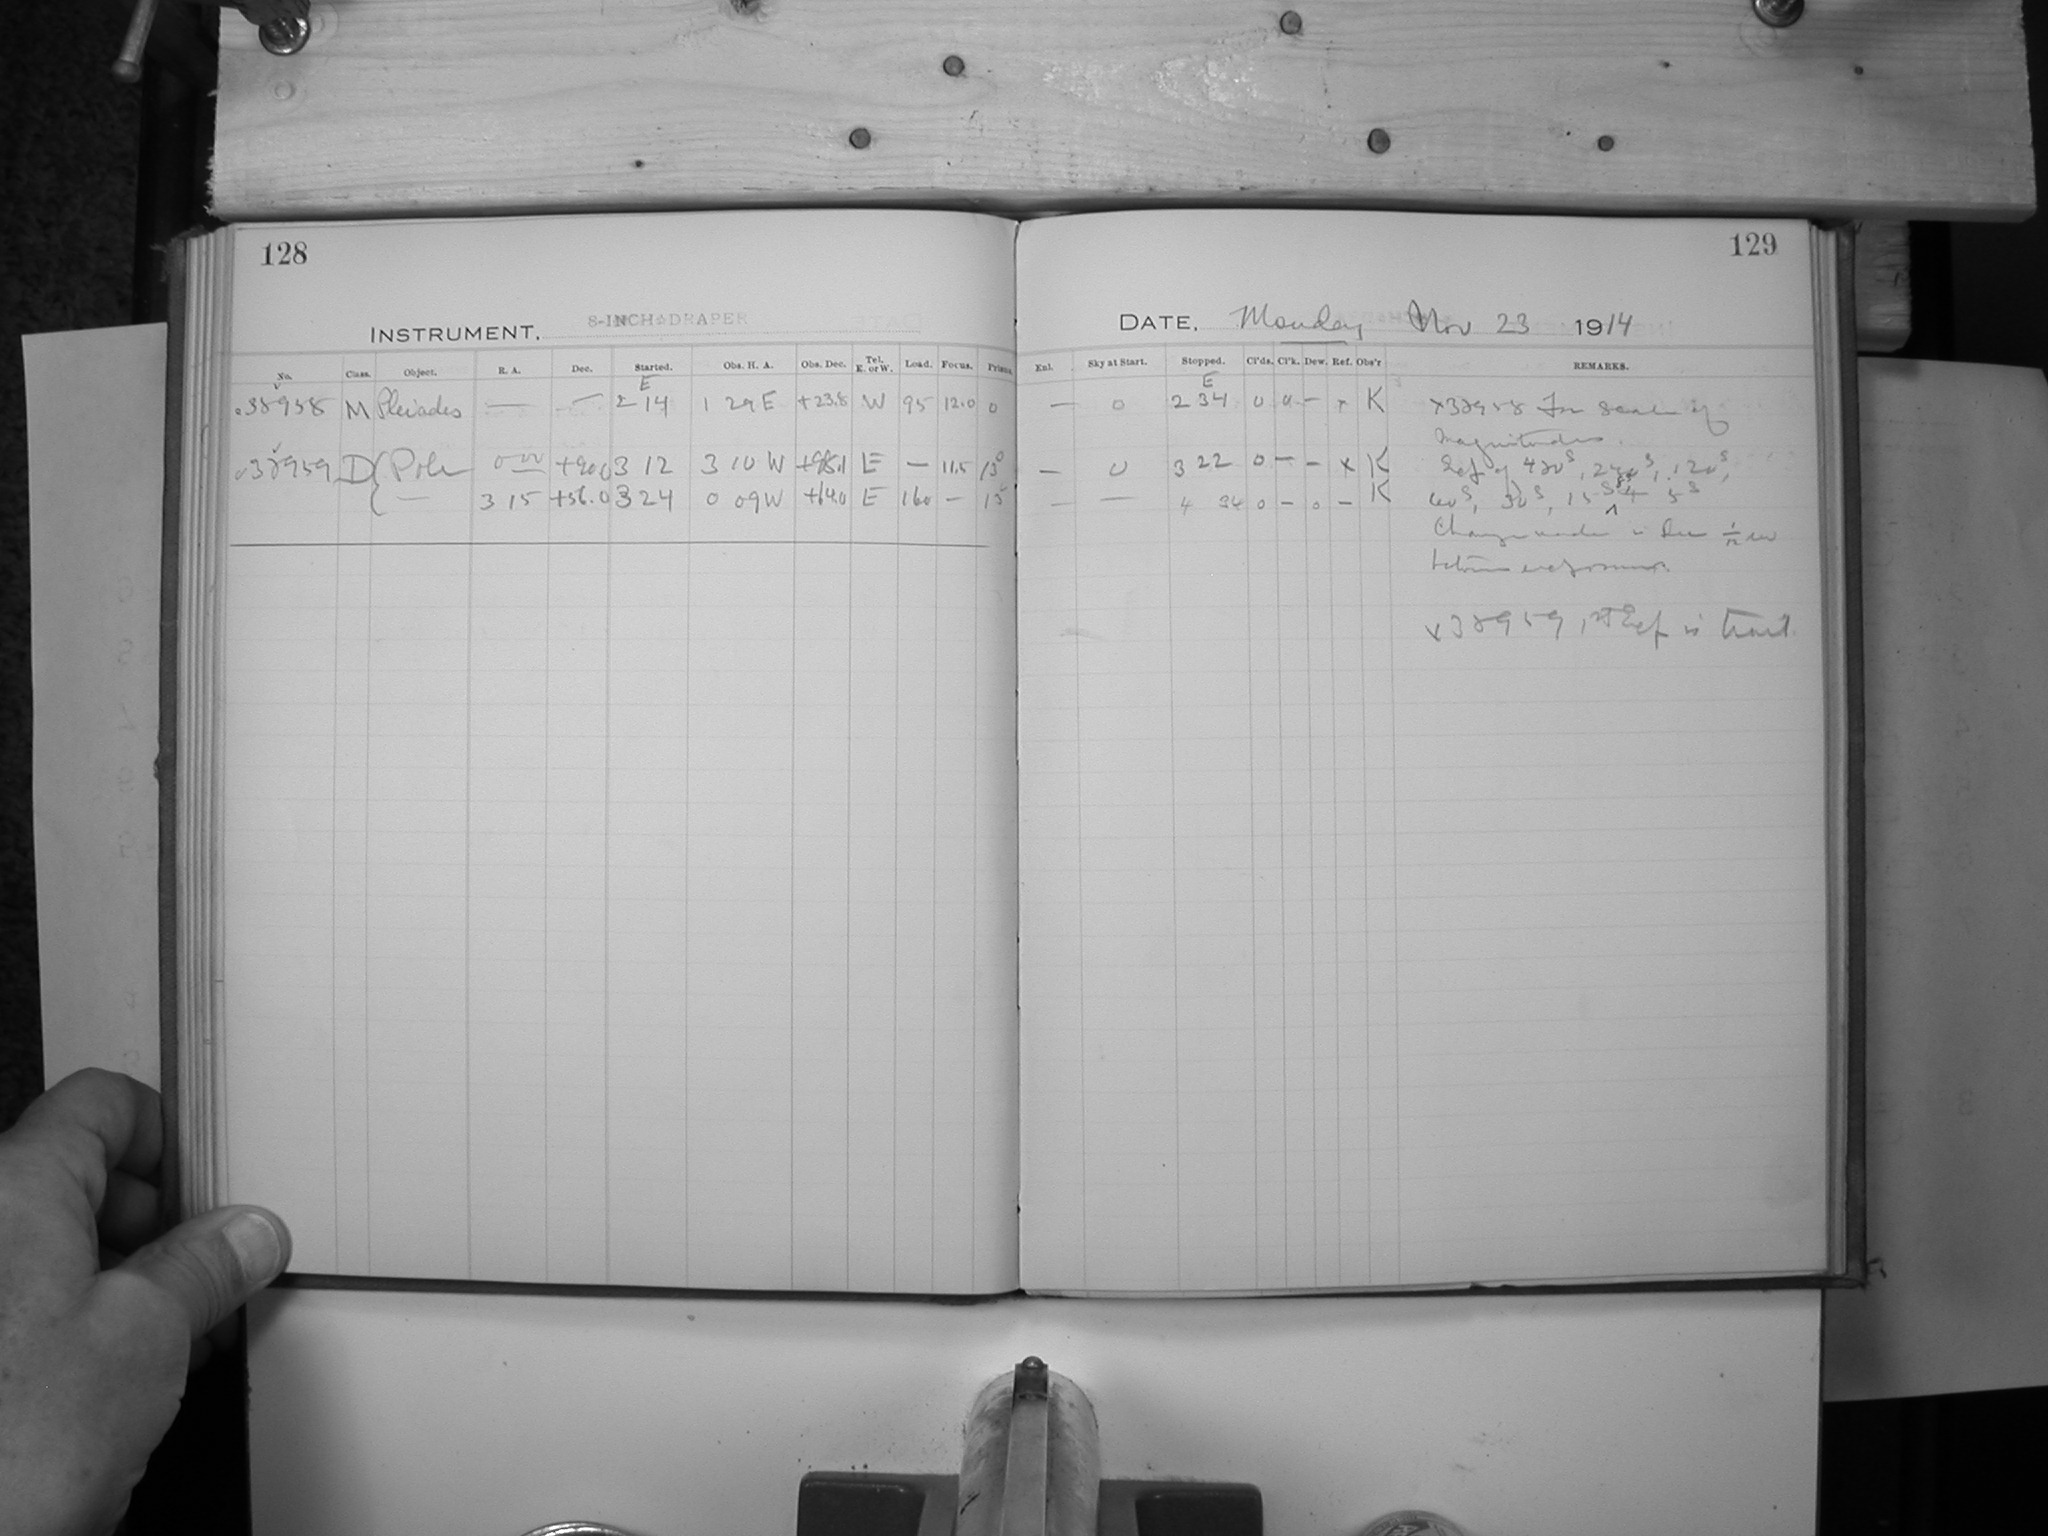 128
INSTRUMENT, 8-INCH DRAPER
No. Class. Object. R. A. Dec. Started. Obs. H. A. Obs. Dec. Tel. E. or W. Load. Focus. Prism.
E
38958 M Pleiades — — 2 14 1 29 E +23.8 W 95 12.0 0
38959 D { Pole 0 00 +90.0 3 12 3 10 W E — 11.5
— 3 15 +56.0 3 24 0 09 W +64.0 E 160 — 15
129
DATE, Monday Nov 23 1914
Enl. Sky at Start. Stopped. Cl'ds. Cl'k. Dew. Ref. Obs'r REMARKS.
E
— 0 2 34 0 0 — x K x38958 For scale of
magnitudes.
— 0 3 22 0 — — x K Exp of 480s, 240s, 120s,
— — 4 34 0 – 0 – K 60s, 30s, 15s 5s
Change made in Dec 1/12 rev
between exposures.
x38959, 1st Exp is